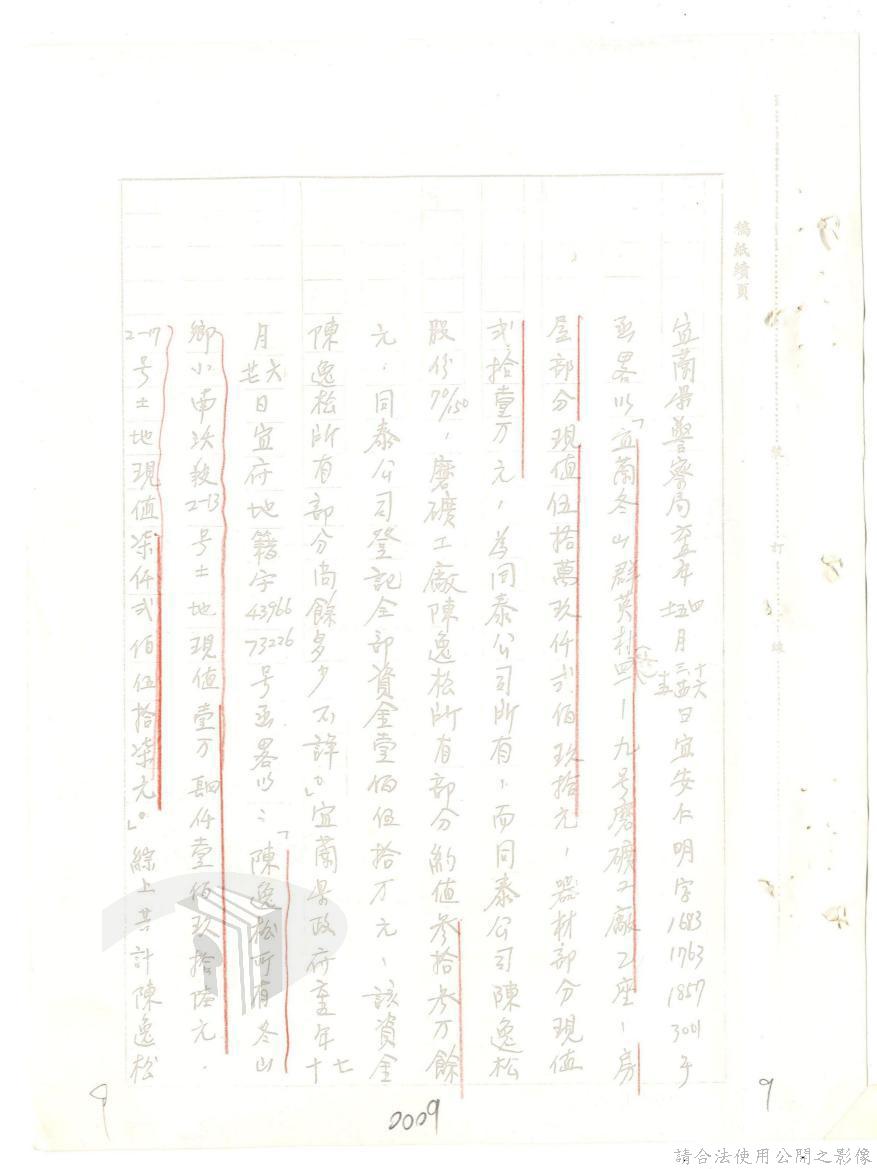 稿紙續頁
宜蘭県警察局 年 月 日宜安仁明字1683 1763 1857 3001号
函畧以「宜蘭冬山群英村 一九号磨礦工廠乙座,房
屋部分現值伍拾萬玖仟弍佰玖拾元,器材部分現值
弍拾壹万元,為同泰公司所有,而同泰公司陳逸松
股份70/150,磨礦工廠陳逸松所有部分約值参拾参万餘
元,同泰公司登記全部資金壹佰伍拾万元,該資金
陳逸松所有部分尚餘多少不詳。」宜蘭県政府 年十七
月廿六日宜府地籍字43966 73226号函畧以:「陳逸松所有冬山
鄉小南 段2-13号土地現值壹万 仟壹佰玖拾陆元.
2-17号土地現值柒仟弍佰伍拾柒元。」綜上共計陳逸松
裝 訂 線
9
0009
9
請合法使用公開之影像